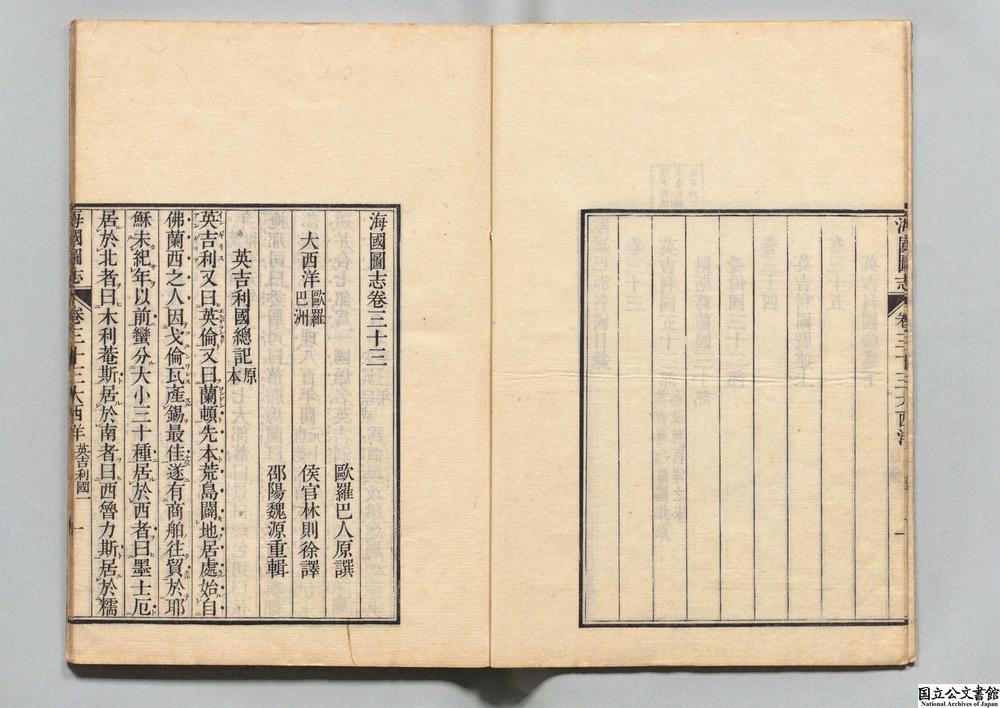 海國圖志
卷三十三大西洋
一
海國圖志卷三十三
歐羅巴人原譔
大西洋歐羅巴洲
侯官林則徐譯
邵陽魏源重輯
英吉利國總記原本
英吉利又曰英倫又曰蘭頓先本荒島闢地居處始自
佛蘭西之人因戈倫瓦產錫最佳遂有商舶往貿於耶
穌未紀年以前蠻分大小三十種居於西者曰墨士厄
居於北者曰木利菴斯居於南者曰西魯力斯居於糯
海國圖志
卷三十三大西洋英吉利國一
一
国立公文書館
National Archives of Japan